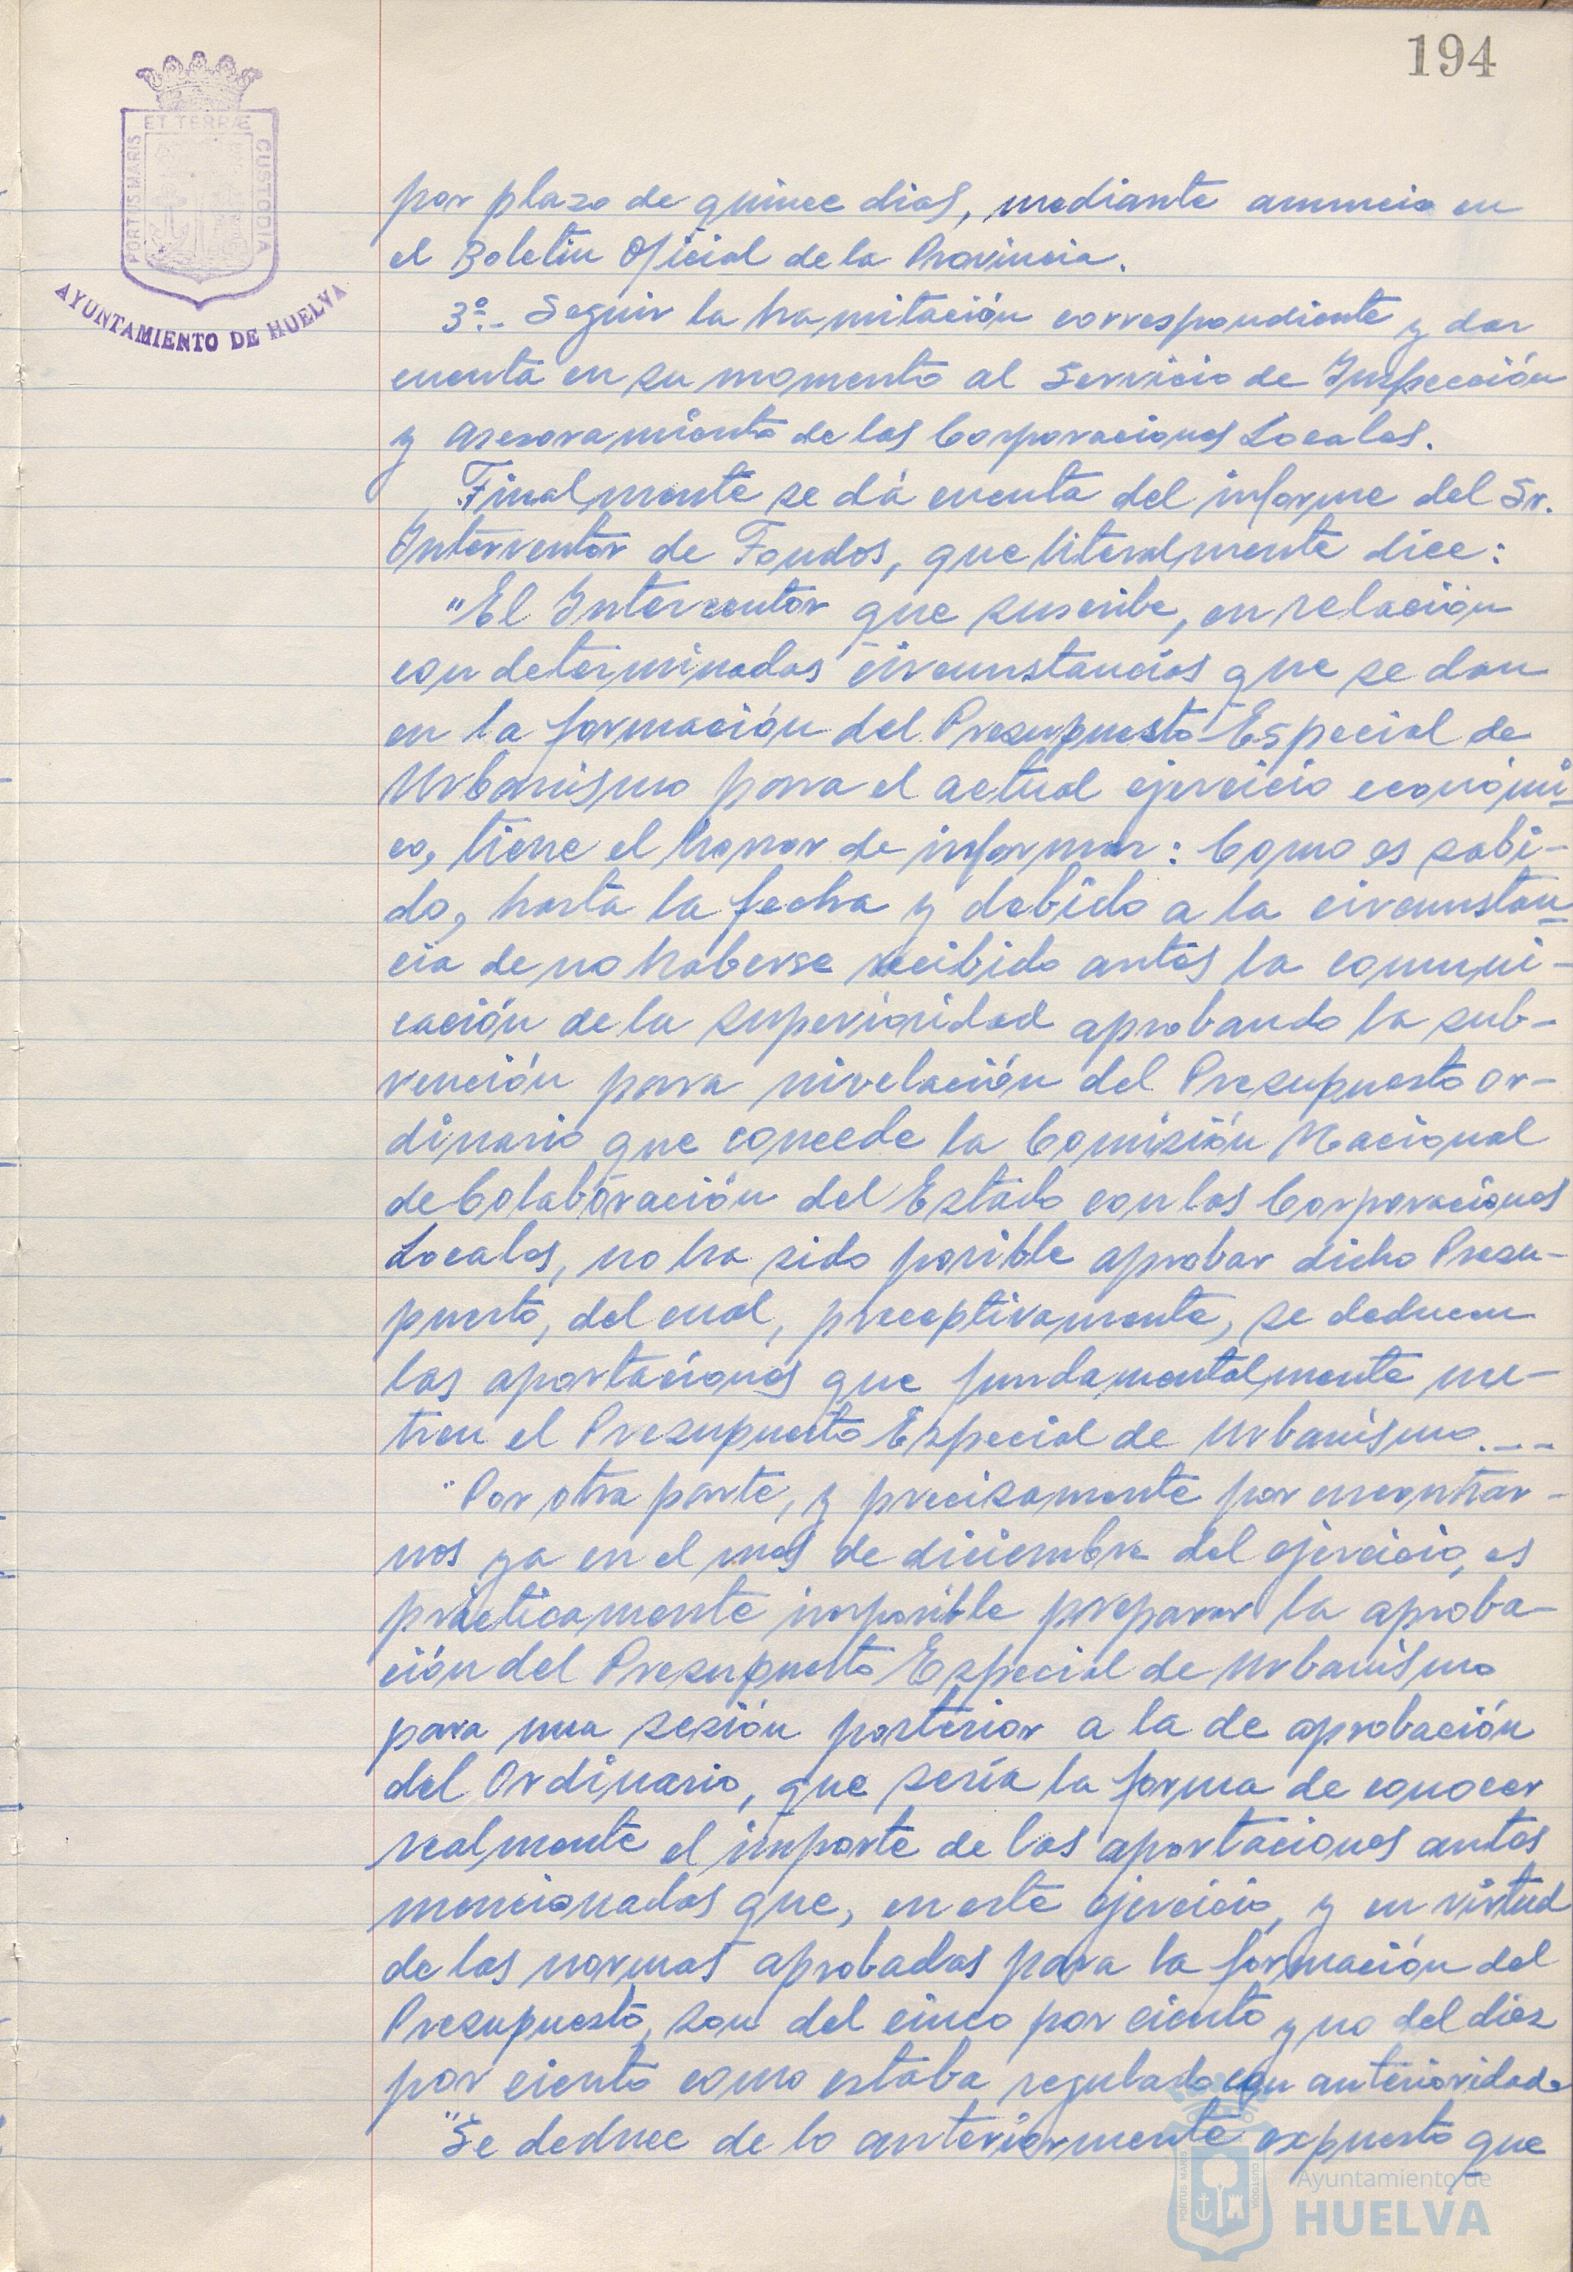 194
ET TERRÆ
PORTIS MARIS
CUSTODIA
AYUNTAMIENTO DE HUELVA
por plazo de quince dias, mediante anuncio en
el Boletin Oficial de la Provincia.
3º.- Seguir la tramitación correspondiente y dar
cuenta en su momento al Servicio de Inspección
y Asesoramiento de las Corporaciones Locales.
Finalmente se dá cuenta del informe del Sr.
Interventor de Fondos, que literalmente dice:
"El Interventor que suscribe, en relación
con determinadas circunstancias que se dan
en la formación del Presupuesto Especial de
Urbanismo para el actual ejercicio económi-
co, tiene el honor de informar: Como es sabi-
do, hasta la fecha y debido a la circunstan-
cia de no haberse recibido antes la comuni-
cación de la superioridad aprobando la sub-
vención para nivelación del Presupuesto or-
dinario que concede la Comisión Nacional
de Colaboración del Estado con las Corporaciones
Locales, no ha sido posible aprobar dicho Presu-
puesto, del cual, preceptivamente, se deducen
las aportaciones que fundamentalmente nu-
tren el Presupuesto Especial de Urbanismo.--
"Por otra parte, y precisamente por encontrar-
nos ya en el mes de diciembre del ejercicio, es
prácticamente imposible preparar la aproba-
ción del Presupuesto Especial de Urbanismo
para una sesión posterior a la de aprobación
del Ordinario, que sería la forma de conocer
realmente el importe de las aportaciones antes
mencionadas que, en este ejercicio, y en virtud
de las normas aprobadas para la formación del
Presupuesto, son del cinco por ciento y no del diez
por ciento como estaba regulado con anterioridad.
"Se deduce de lo anteriormente expuesto que
PORTUS MARIS
CUSTODIA
Ayuntamiento de
HUELVA